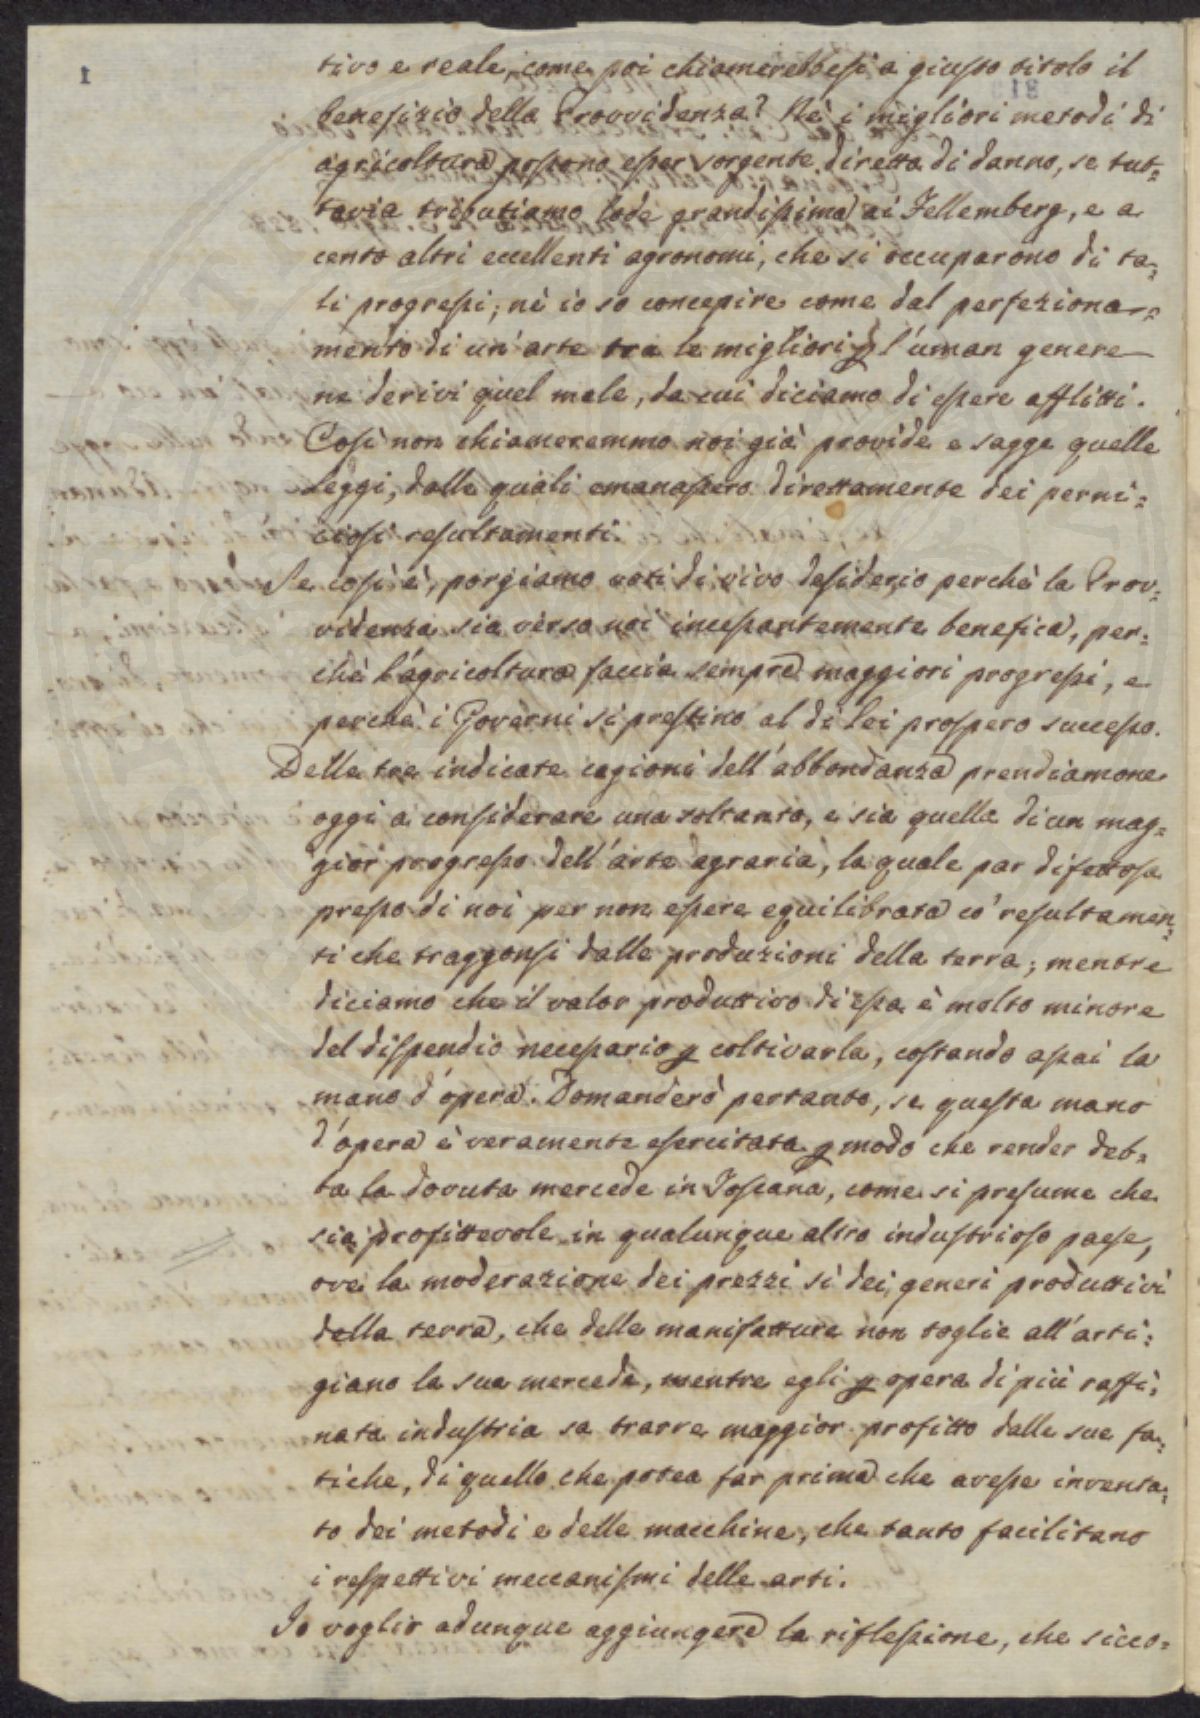 1
tivo e reale, come poi chiamerebbesi a giusto titolo il
benefizio della Provvidenza? Nè i migliori metodi di
agricoltura possono esser sorgente diretta di danno, se tut=
tavia tributiamo lode grandissima ai Fellemberg, e a
cento altri eccellenti agronomi, che si occuparono di ta=
li progressi; nè io so concepire come dal perfeziona=
mento di un'arte tra le migliori p l'uman genere
ne derivi quel male, da cui diciamo di essere afflitti.
Così non chiameremmo noi già provide e sagge quelle
Leggi, dalle quali emanassero direttamente dei perni=
ciosi resultamenti.
Se così è, porgiamo voti di vivo desiderio perchè la Prov=
videnza sia verso noi incessantemente benefica, per=
chè l'agricoltura faccia sempre maggiori progressi, e
perchè i Governi si prestino al di lei prospero successo.
Delle tre indicate cagioni dell'abbondanza prendiamone
oggi a considerare una soltanto, e sia quella di un mag=
gior progresso dell'arte agraria, la quale par difettosa
presso di noi per non essere equilibrata co' resultamen=
ti che traggonsi dalle produzioni della terra; mentre
diciamo che il valor produttivo di essa è molto minore
del dispendio necessario p coltivarla, costando assai la
mano d'opera. Domanderò pertanto, se questa mano
d'opera è veramente esercitata p modo che render deb=
ba la dovuta mercede in Toscana, come si presume che
sia profittevole in qualunque altro industrioso paese,
ove la moderazione dei prezzi sì dei generi produttivi
della terra, che delle manifatture non toglie all'arti=
giano la sua mercede, mentre egli p opera di più raffi=
nata industria sa trarre maggior profitto dalle sue fa=
tiche, di quello che potea far prima che avesse inventa=
to dei metodi e delle macchine, che tanto facilitano
i respettivi meccanismi delle arti.
Io voglio adunque aggiungere la riflessione, che sicco=